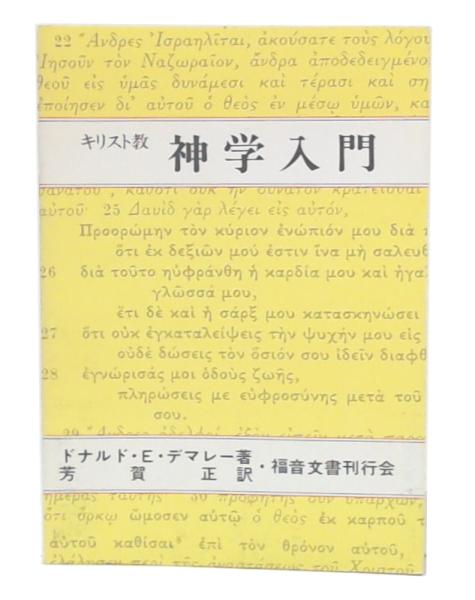 22 "Ανδρες Ἰσραηλῖται, ἀκούσατε τοὺς λόγου
Ἰησοῦν τὸν Ναζωραῖον, ἄνδρα ἀποδεδειγμένο
θεοῦ εἰς ὑμᾶς δυνάμεσι καὶ τέρασι καὶ ση
ἐποίησεν δι' αὐτοῦ ὁ θεὸς ἐν μέσῳ ὑμῶν, κα
キリスト教 神学入門
θανάτου, καθότι οὐκ ἦν δυνατὸν κρατεῖσθαι
αὐτοῦ· 25 Δαυὶδ γὰρ λέγει εἰς αὐτόν,
Προορώμην τὸν κύριον ἐνώπιόν μου διὰ π
ὅτι ἐκ δεξιῶν μού ἐστιν ἵνα μὴ σαλευθ
26 διὰ τοῦτο ηὐφράνθη ἡ καρδία μου καὶ ἠγα
γλῶσσά μου,
ἔτι δὲ καὶ ἡ σάρξ μου κατασκηνώσει
27 ὅτι οὐκ ἐγκαταλείψεις τὴν ψυχήν μου εἰς
οὐδὲ δώσεις τὸν ὅσιόν σου ἰδεῖν διαφθ
28 ἐγνώρισάς μοι ὁδοὺς ζωῆς,
πληρώσεις με εὐφροσύνης μετὰ τοῦ
σου.
29 "Ανδρες ἀδελφοί, ἐξὸν εἰπεῖν μετὰ παρρ
ドナルド・E・デマレー著
芳賀正訳・福音文書刊行会
ἡμέρας ταύτης· 30 προφήτης οὖν ὑπάρχων,
ὅτι ὅρκῳ ὤμοσεν αὐτῷ ὁ θεὸς ἐκ καρποῦ τ
αὐτοῦ καθίσαι ἐπὶ τὸν θρόνον αὐτοῦ,
ἐλάλησεν περὶ τῆς ἀναστάσεως τοῦ Χριστοῦ